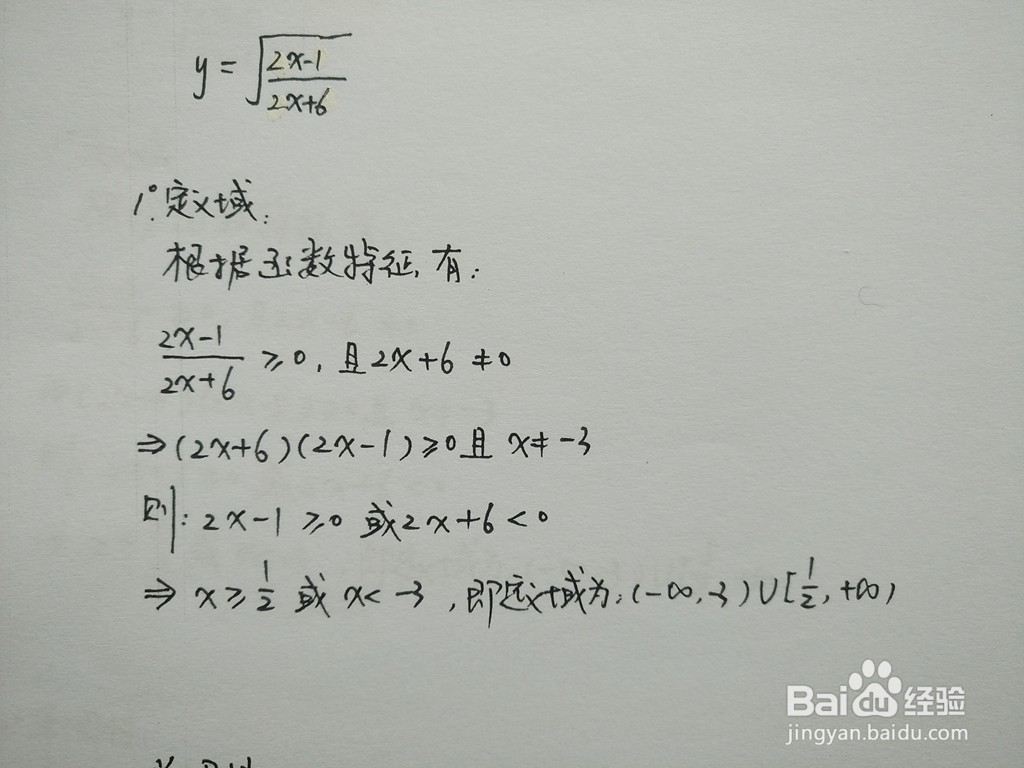 y = √((2x-1)/(2x+6))
1°.定义域:
根据函数特征,有:
(2x-1)/(2x+6) ≥0,且2x+6 ≠0
⇒(2x+6)(2x-1)≥0且 x≠-3
则: 2x-1 ≥0 或2x+6<0
⇒ x≥1/2 或 x<-3 ,即定义域为:(-∞,-3)∪[1/2,+∞)
Baidu经验
jingyan.baidu.com